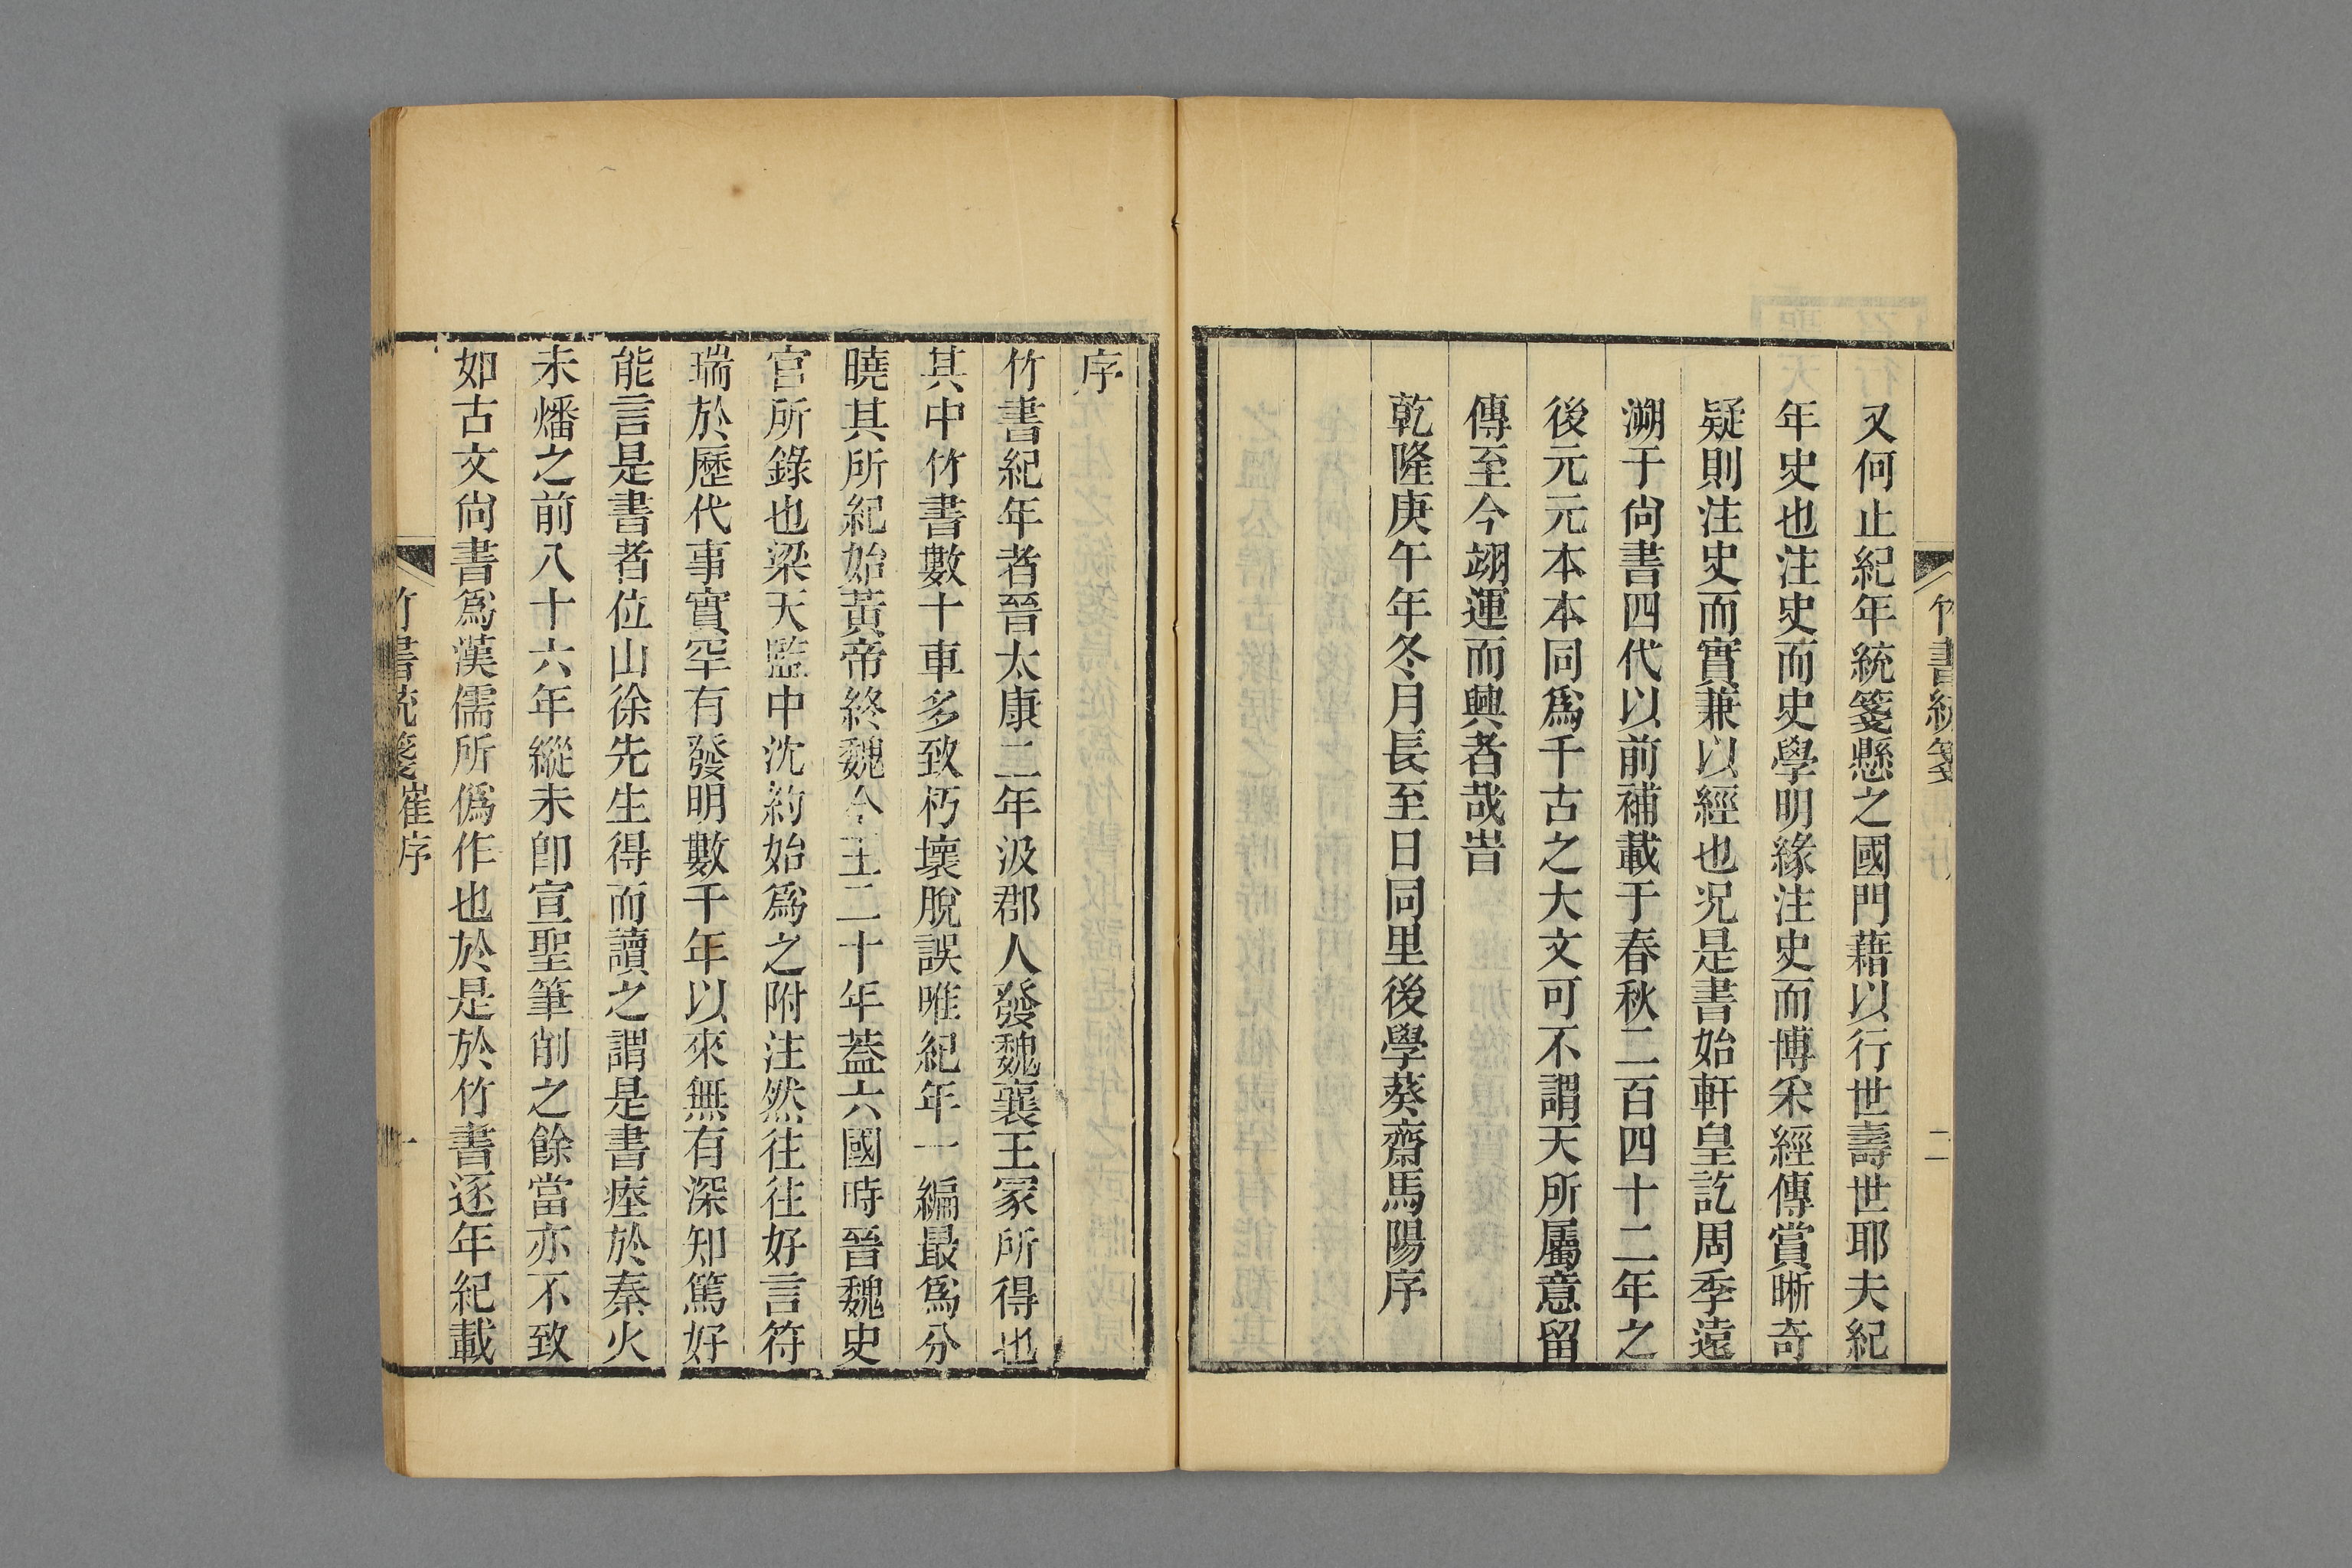 又何止紀年統箋懸之國門藉以行世壽世耶夫紀
年史也注史而史學明緣注史而博采經傳賞晰奇
疑則注史而實兼以經也况是書始軒皇訖周季遠
溯于尙書四代以前補載于春秋二百四十二年之
後元元本本同爲千古之大文可不謂天所屬意留
傳至今翊運而興者哉旹
乾隆庚午年冬月長至日同里後學葵齋馬陽序
竹書統箋
二
序
竹書紀年者晉太康二年汲郡人發魏襄王冢所得也
其中竹書數十車多致朽壞脫誤唯紀年一編最爲分
曉其所紀始黃帝終魏今王二十年蓋六國時晉魏史
官所錄也梁天監中沈約始爲之附注然往往好言符
瑞於歷代事實罕有發明數千年以來無有深知篤好
能言是書者位山徐先生得而讀之謂是書瘞於秦火
未燔之前八十六年縱未卽宣聖筆削之餘當亦不致
如古文尙書爲漢儒所僞作也於是於竹書逐年紀載
竹書統箋崔序
一